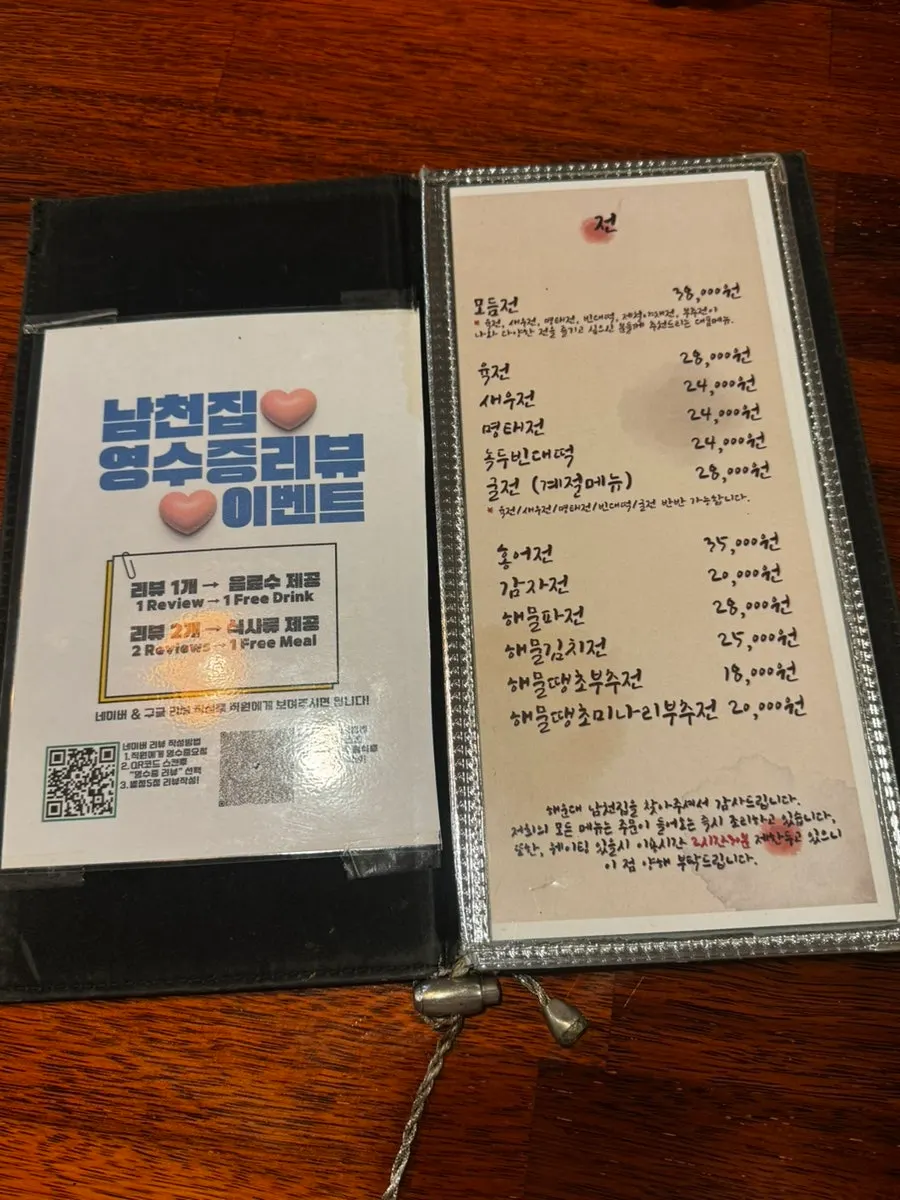 남천집
영수증리뷰
이벤트
리뷰 1개 → 음료수 제공
1 Review → 1 Free Drink
리뷰 2개 → 식사류 제공
2 Reviews → 1 Free Meal
네이버 & 구글 리뷰 작성후 직원에게 보여주시면 됩니다!
네이버 리뷰 작성방법
1.직원에게 영수증요청
2.QR코드 스캔후
"영수증 리뷰" 선택
3.별점5점 리뷰작성!
전
모듬전 38,000원
* 육전, 새우전, 명태전, 빈대떡, 제철야채전, 부추전이
나와 다양한 전을 즐기고 싶으신 분들께 추천드리는 대표메뉴.
육전 28,000원
새우전 24,000원
명태전 24,000원
녹두빈대떡 24,000원
굴전 (계절메뉴) 28,000원
* 육전/새우전/명태전/빈대떡/굴전 반반 가능합니다.
홍어전 35,000원
감자전 20,000원
해물파전 28,000원
해물김치전 25,000원
해물땡초부추전 18,000원
해물땡초미나리부추전 20,000원
해운대 남천집을 찾아주셔서 감사드립니다.
저희의 모든 메뉴는 주문이 들어오는 즉시 조리하고 있습니다.
또한, 웨이팅 있을시 이용시간 제한두고 있으니
이 점 양해 부탁드립니다.